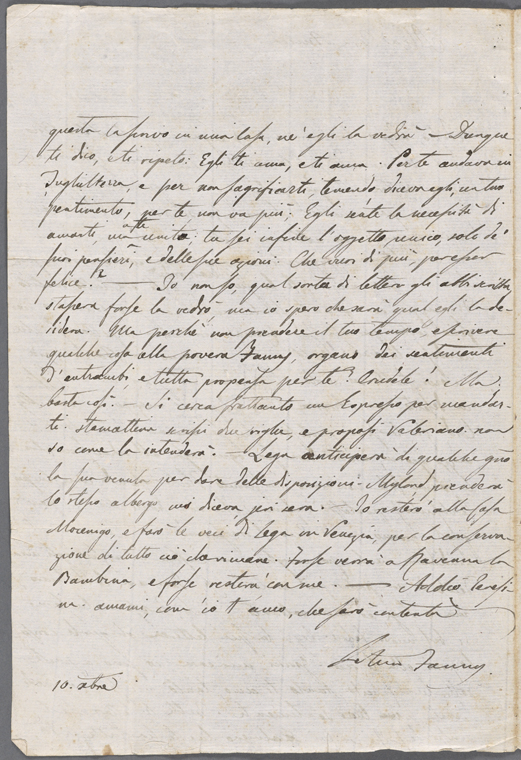 questa la porvo in mia casa, ne' egli la vedrà — Dunque
ti dico, e ti ripeto: Egli ti ama, e ti ama. Per te andava in
Inghilterra, e per non sagrificarti, temendo diceva egli, un tuo
pentimento, per te non va più: Egli sente la necessità di
amarti, unita; tu sei infine l'oggetto, unico, solo de'
suoi pensieri, e delle sue azioni. Che vuoi di più, per esser
felice? — Io non so, qual sorta di lettera gli abbi scritta,
stasera forse la vedrò, ma io spero che sarà qual egli la de-
sidera. Ma perchè non prendere il tuo tempo, e scrivere
qualche cosa alla povera Fanny, organo dei sentimenti
d'entrambi e tutta propensa per te? Crudele! Ma
basta così. — Si cerca frattanto un Espresso per mandar-
ti. stamattina scrissi due righe, e proposi Valeriano. non
so come la intenderà. — Lega anticiperà di qualche giorno
la sua venuta per dare delle disposizioni. Mylord prenderà
lo stesso albergo, mi diceva jeri sera. — Io resterò alla Casa
Mocenigo, e farò le veci di Lega in Venezia, per la conserva-
zione di tutto ciò che rimane. Forse verrà a Ravenna la
Bambina, e forse resterà con me. — Addio Teresi
na. amami, com' io ti amo, che sarò contenta
Fanny.
10. xbre